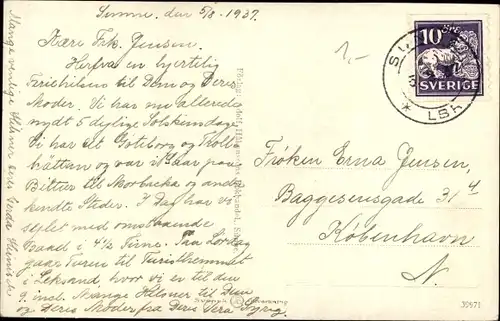 Sunne, den 5/8-1937.
Kære Frk. Jensen.
Herfra en hjertelig
Feriehilsen til Dem og Deres
Moder. Vi har nu allerede
nydt 5 dejlige Solskinsdage.
Vi har set Göteborg og Troll-
hättan og var i Gaar paa
til og andre
kendte Steder. I Dag har vi
sejlet med omstaaende
Baad i 4½ Time. Paa Lørdag
gaar Turen til Turisthemmet
i Leksand, hvor vi er til den
9. incl. Mange Hilsner til Dem
og Deres Moder fra Deres
Mange venlige Hilsner Deres Gerda
Fröken Erna Jensen,
Baggesensgade 31 4
København
N.
10 ÖRE
SVERIGE
LBR
1,-
35971